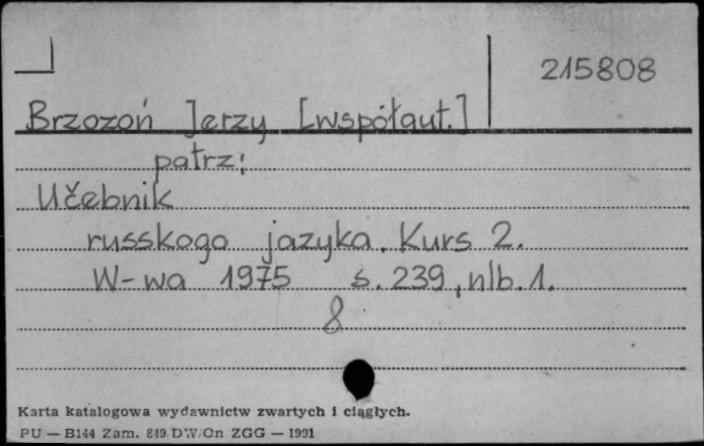 215808
Brzozoń Jerzy [współaut.]
patrz:
Učebnik
russkogo jazyka. Kurs 2.
W-wa 1975 s. 239, nlb. 1.
8
Karta katalogowa wydawnictw zwartych i ciągłych.
PU — B144 Zam. 819 DW/On ZGG — 1991